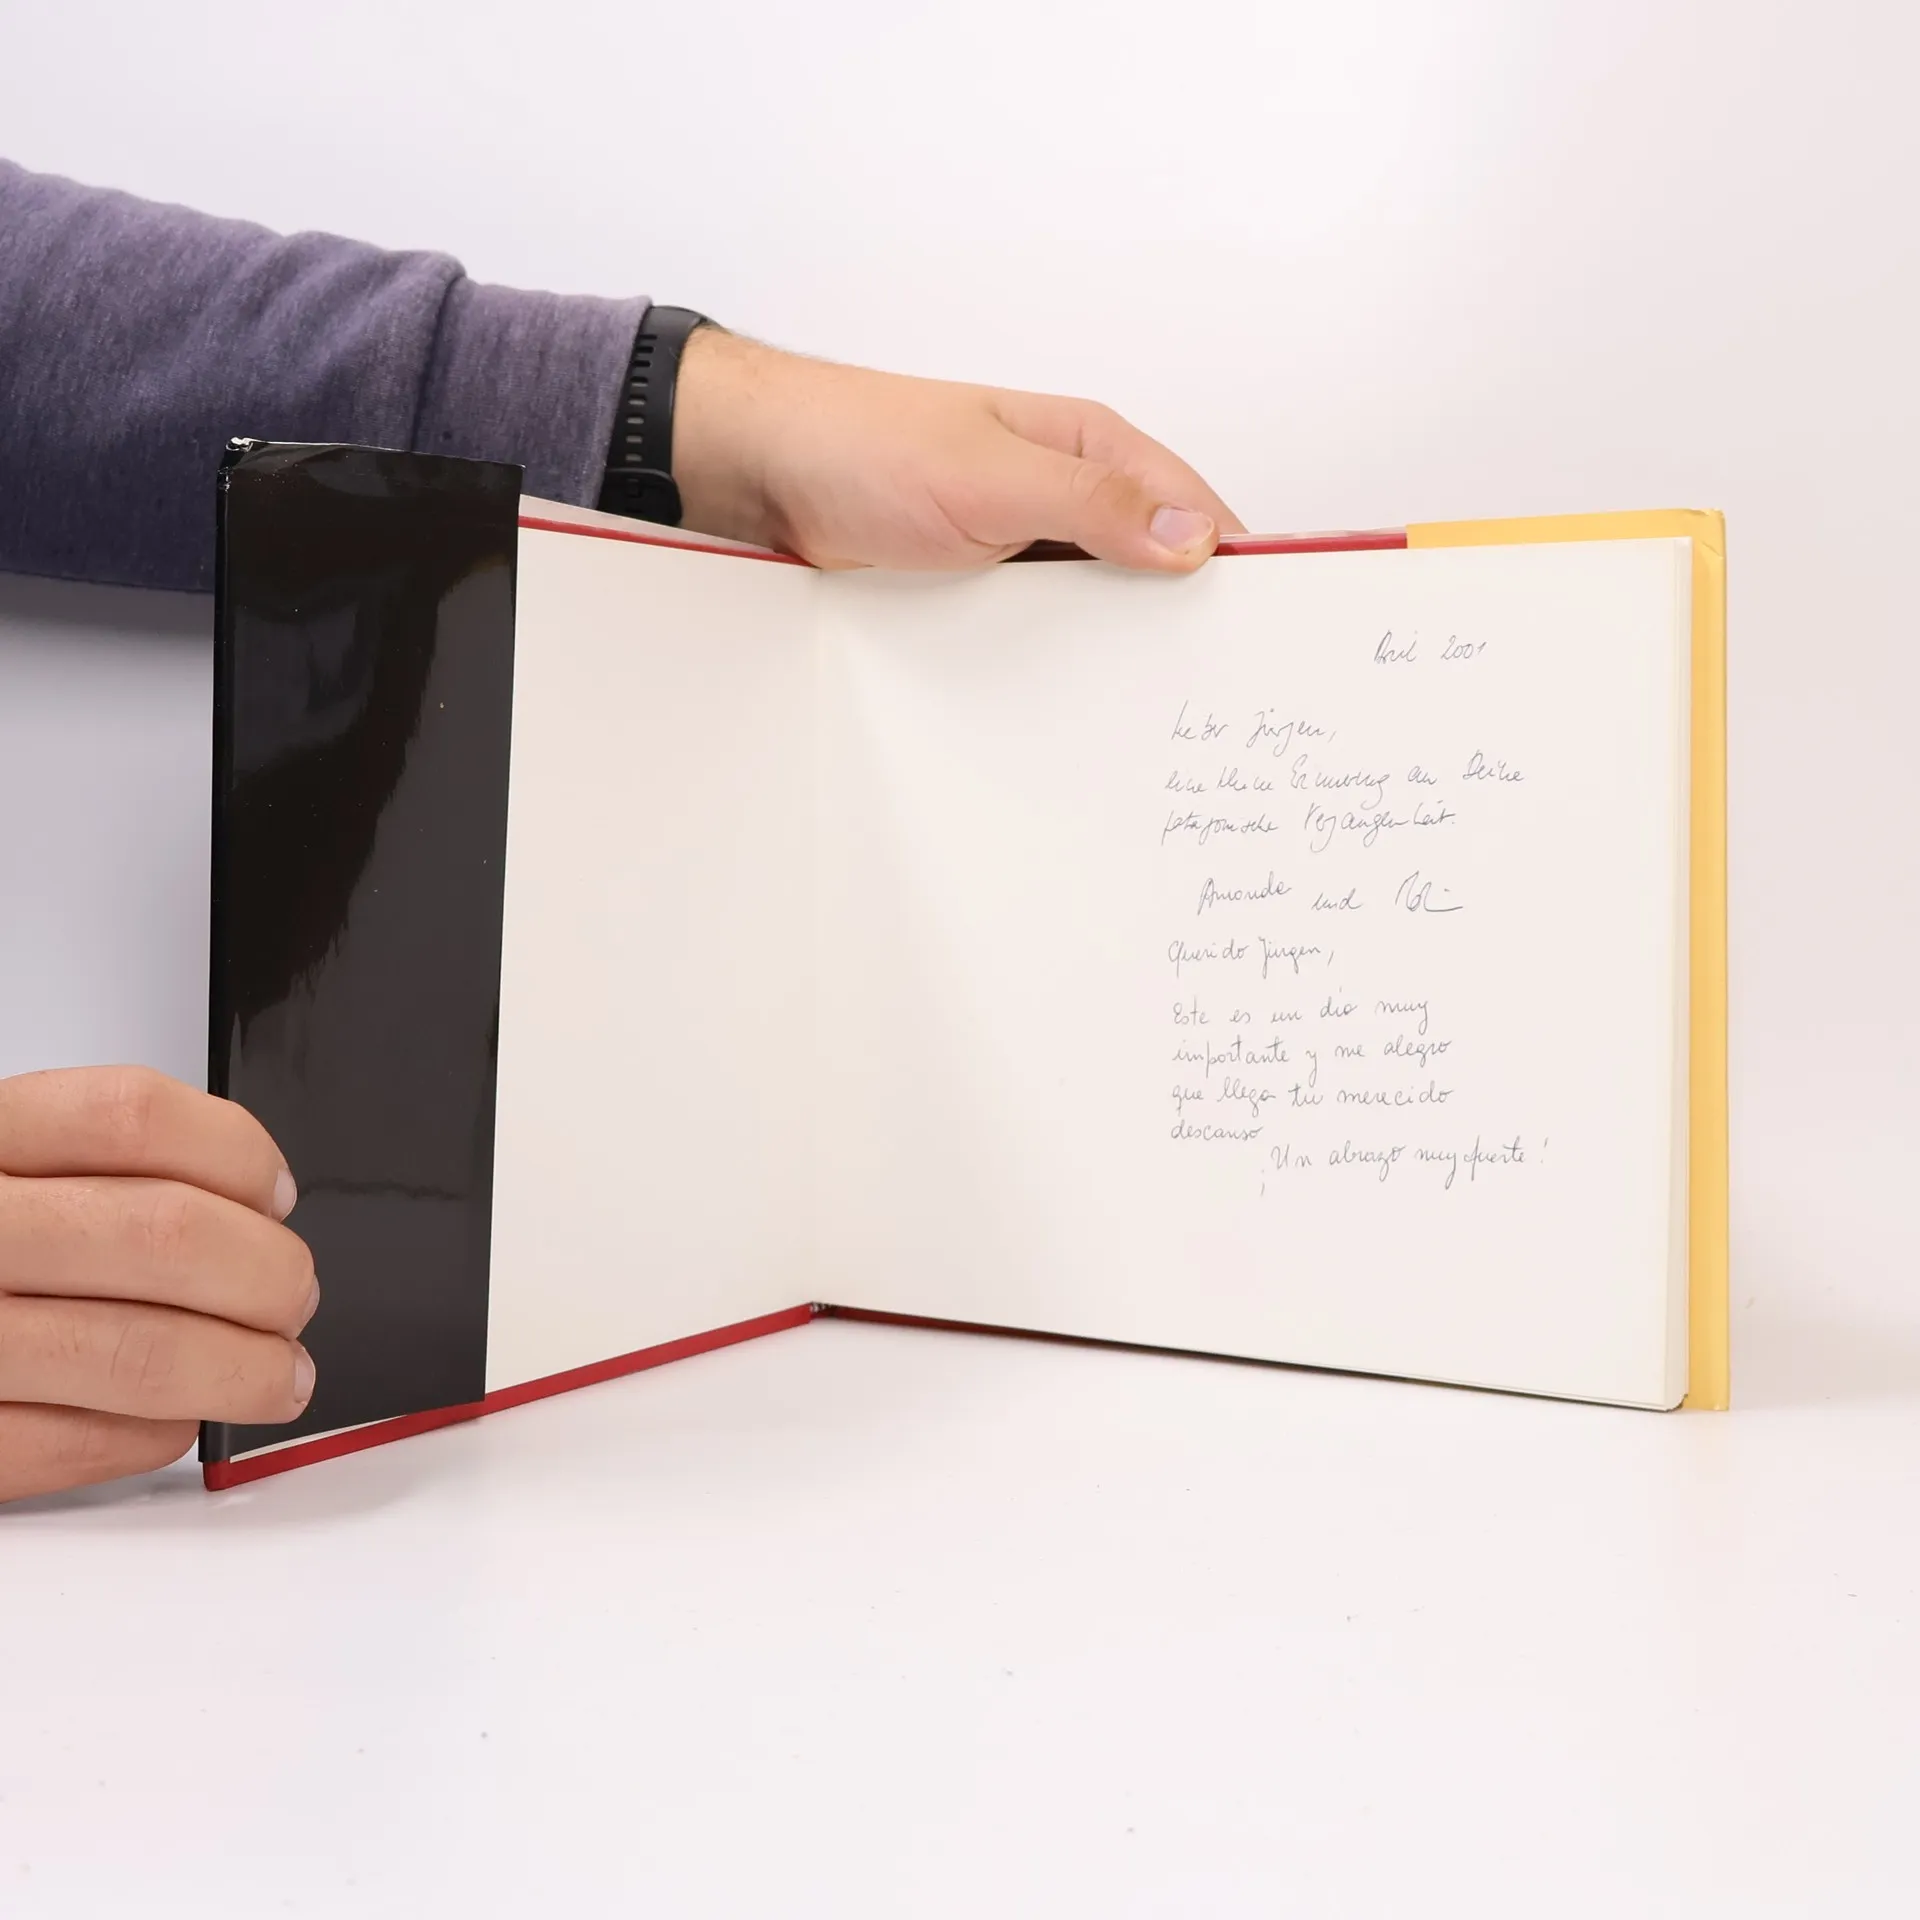 April 2001
Lieber Jürgen,
eine kleine Erinnerung an Deine
patagonische Vergangenheit.
Amanda und
Querido Jürgen,
Este es un día muy
importante y me alegro
que llega tu merecido
descanso
¡Un abrazo muy fuerte!